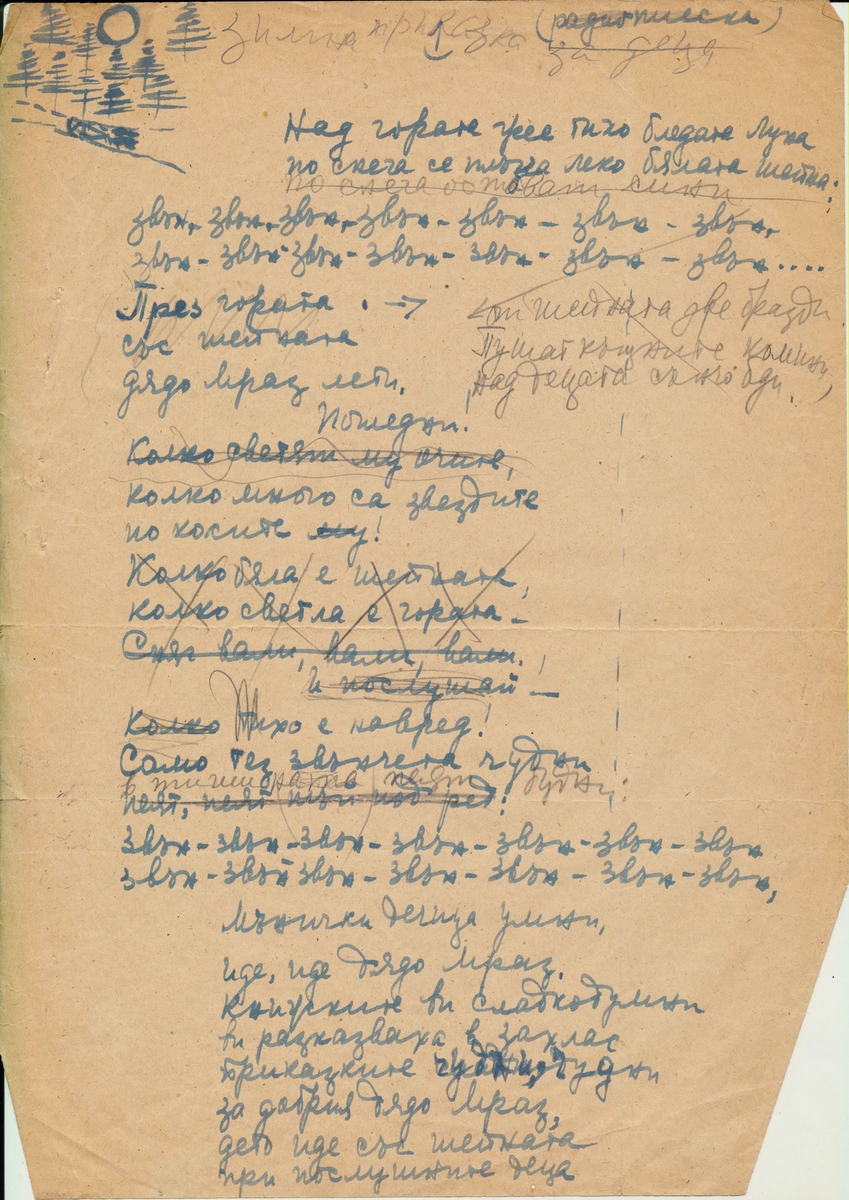 зимна приказка (радиопиеска)
за деца
Над гората грее тихо бледата луна
по снега се плъзга леко бялата шейна:
по снега остават сини
звън, звън, звън, звън - звън - звън - звън,
звън - звън - звън - звън - звън - звън - звън....
През гората . → от шейната две бразди
със шейната Пушат къщните комини,
дядо Мраз лети. над децата сън бди.
Погледни!
Колко светят му очите,
колко много са звездите
по косите му!
Колко бяла е шейната,
колко светла е гората -
Сняг вали, вали, вали.
И послушай -
Колко Тихо е навред!
Само тез звънчета чудни
в тишината пеят будни:
пеят, пеят под ред:
Звън - звън - звън - звън - звън - звън - звън
звън - звън звън - звън - звън - звън - звън,
Мънички дечица умни,
иде, иде дядо Мраз.
Книжките ви сладкодумни
ви разказваха в захлас
приказките чудни, чудни
за добрия дядо Мраз,
дето иде със шейната
при послушните деца